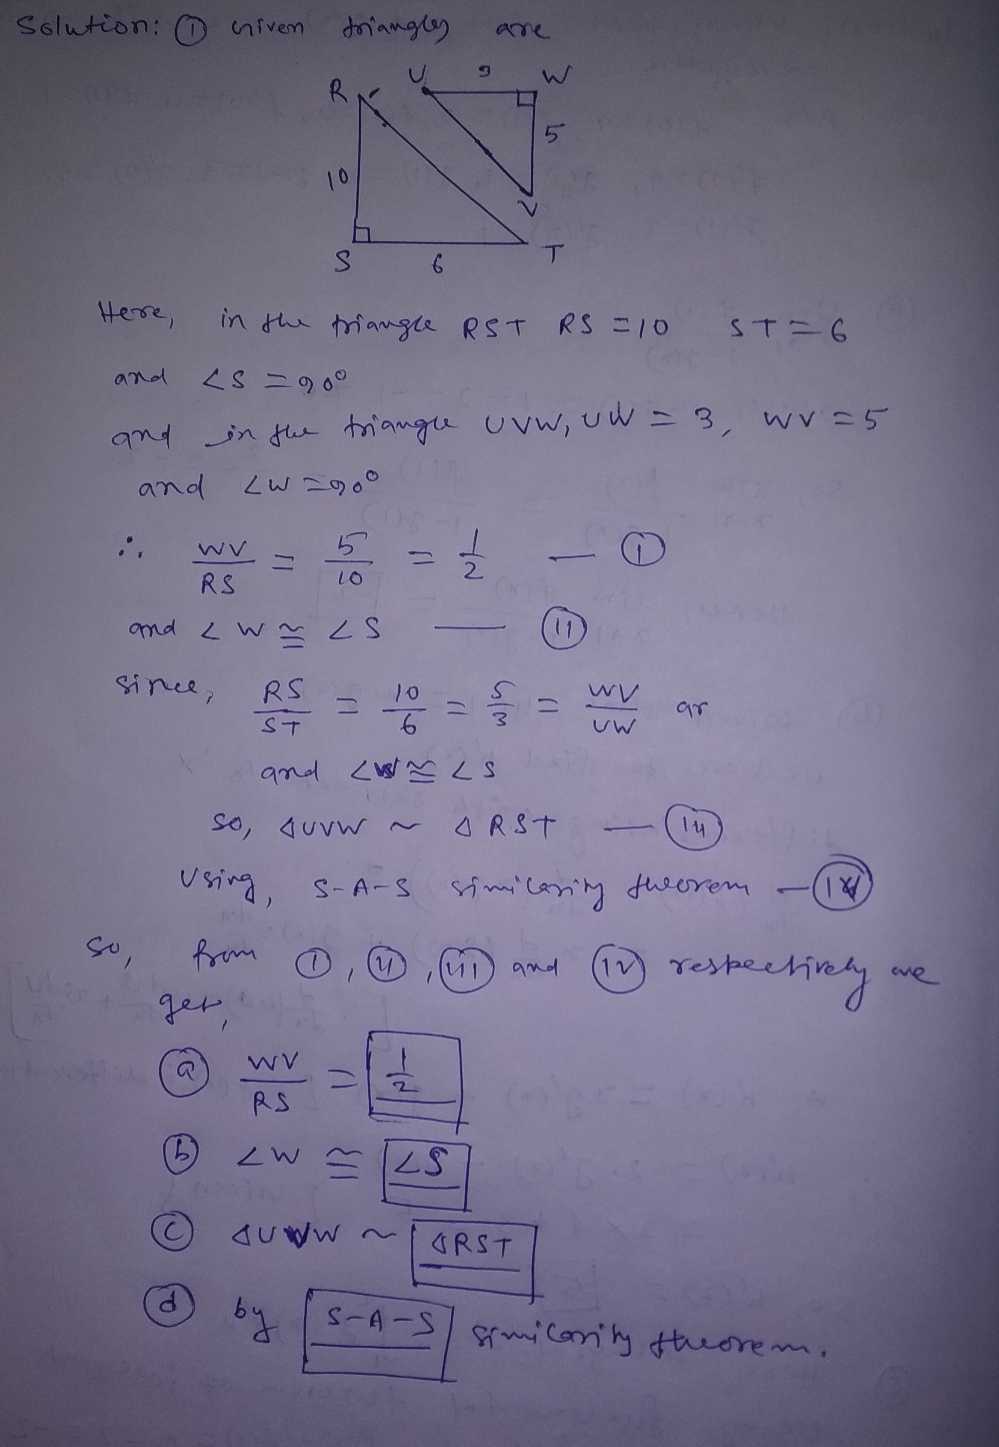 Solution: ① Given triangles are
R U 3 W
5
10
V
S 6 T
Here, in the triangle RST RS = 10 ST = 6
and ∠S = 90°
and in the triangle UVW, UW = 3, WV = 5
and ∠W = 90°
∴ WV/RS = 5/10 = 1/2 — ①
and ∠W ≅ ∠S — ⑪
since, RS/ST = 10/6 = 5/3 = WV/UW ar
and ∠W ≅ ∠S
so, ΔUVW ~ ΔRST — (iii)
Using, S-A-S similarity theorem — (iv)
So, from (i), (ii), (iii) and (iv) respectively we
get,
(a) WV/RS = 1/2
(b) ∠W ≅ ∠S
(c) ΔUVW ~ ΔRST
(d) by S-A-S similarity theorem.